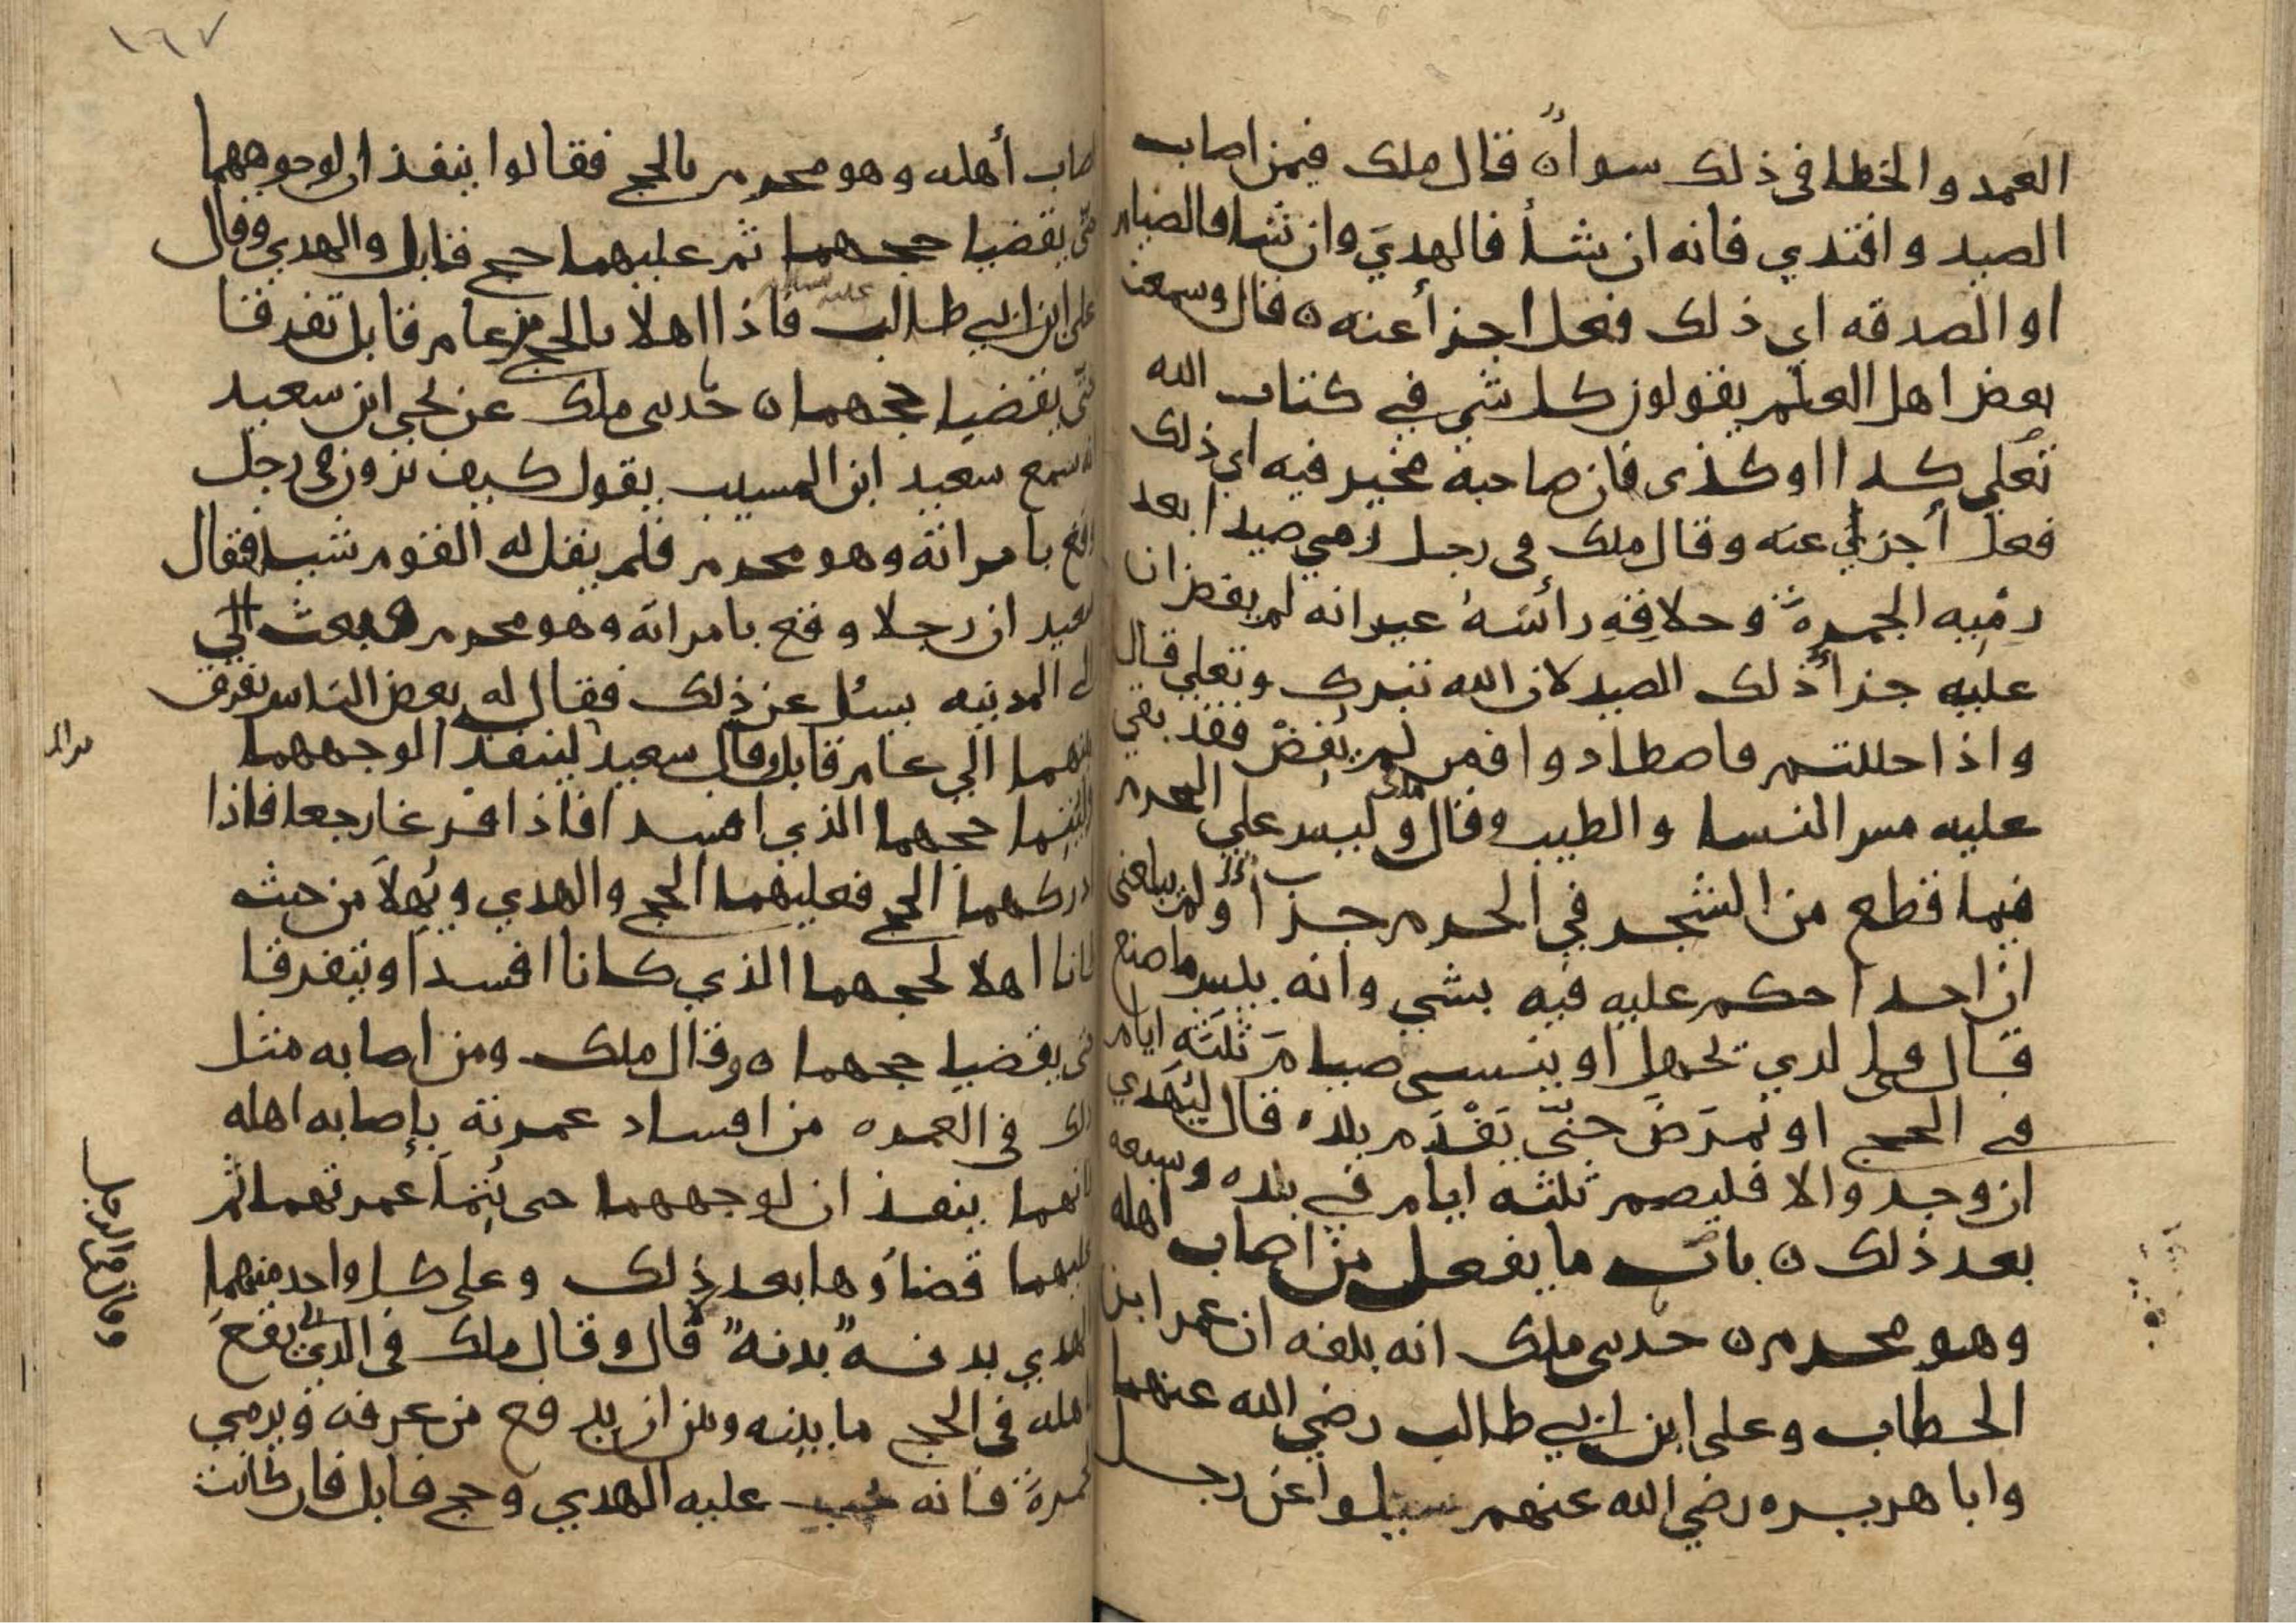 العمد والخطا في ذلك سوآء قال ملك فيمن اصاب
الصيد وافتدي فانه ان شأ فالهديَ وان شا فالصيام
او الصدقه اي ذلك فعل اجزأ عنه ه قال وسمعت
بعض اهل العلم يقولون كل شي في كتاب الله
تعلي كدا او كذى فان صاحبه مخير فيه اي ذلك
فعل أجزي عنه وقال ملك في رجل رمى صيدا بعد
رميه الجمرة وحلاقه رأسه غير انه لم يفض ان
عليه جزأ ذلك الصيد لان الله تبرك وتعلي قال
واذا حللتم فاصطادوا فمن لم يفض فقد بقي
عليه مس النسا والطيب وقال ملك وليس علي المحرم
فيما قطع من الشجر في الحرم جزأ ولم يبلغنى
ان احدا حكم عليه فيه بشي وانه بليس ما صنع
قال ملك في لدي يجهل او ينسى صيام ثلثه ايام
في الحج او يمرض حتى يقدم بلده قال ليهدي
ان وجد والا فليصم ثلثه ايام في بلده وسبعه
بعد ذلك ه باب ما يفعل من اصاب اهله
وهو محرم ه حدىى ملك انه بلغه ان عمر ابن
الخطاب وعلى ابن ابي طالب رضي الله عنهما
وابا هريره رضي الله عنهم سيلوا عن رجل
١٦٧
اصاب أهله وهو محرم بالحج فقالوا ينفذان لوجوههما
حتى يقضيا حجهما ثم عليهما حج قابل والهدي وقال
على ابن ابي طالب عليه السلام فاذا اهلا بالحج من عام قابل تفرقا
حتى يقضيا حجهما ه حدىى ملك عن يحيى ابن سعيد
انه سمع سعيد ابن المسيب يقول كيف ترون في رجل
وقع بامراته وهو محرم فلم يقل له القوم شيا فقال
سعيد ان رجلا وقع بامراته وهو محرم فبعث الي
الى المدينه يسئل عن ذلك فقال له بعض الناس يفرق
بينهما الي عام قابل وقال سعيد لينفذا لوجههما
واليتما حجهما الذي افسدا فاذا فرغا رجعا فاذا
ادركهما الحج فعليهما الحج والهدي ويهلا من حيث
كانا اهلا لحجهما الذي كانا افسدا ويتفرقا
حتى يقضيا حجهما ه وقال ملك ومن اصابه مثل
ذلك في العمره من افساد عمرته بإصابه اهله
فانهما ينفذان لوجههما حى يتما عمرتهما ثم
عليهما قضاؤها بعد ذلك وعلى كل واحد منهما
الهدي بدنه بدنه قال وقال ملك في الذي يقع
باهله في الحج ما بينه وبين ان يدفع من عرفه ويرمي
الجمرة فانه يجب عليه الهدي وحج قابل فان كانت